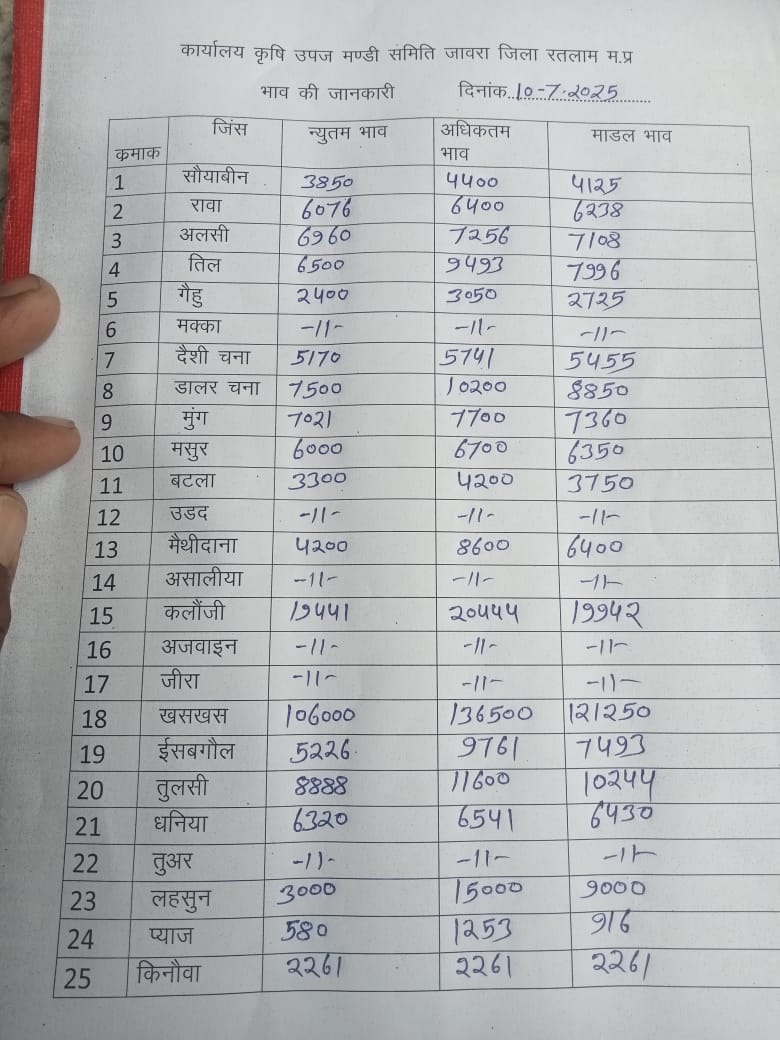 कार्यालय कृषि उपज मण्डी समिति जावरा जिला रतलाम म.प्र
भाव की जानकारी दिनांक..10-7-2025
कमाक जिंस न्युतम भाव अधिकतम भाव माडल भाव
1 सौयाबीन 3850 4400 4125
2 रावा 6076 6400 6238
3 अलसी 6960 7256 7108
4 तिल 6500 9493 7996
5 गैहु 2400 3050 2725
6 मक्का -11- -11- -11-
7 दैशी चना 5170 5741 5455
8 डालर चना 7500 10200 8850
9 मुंग 7021 7700 7360
10 मसुर 6000 6700 6350
11 बटला 3300 4200 3750
12 उडद -11- -11- -11-
13 मैथीदाना 4200 8600 6400
14 असालीया -11- -11- -11-
15 कलौंजी 19441 20444 19942
16 अजवाइन -11- -11- -11-
17 जीरा -11- -11- -11-
18 खसखस 106000 136500 121250
19 ईसबगौल 5226 9761 7493
20 तुलसी 8888 11600 10244
21 धनिया 6320 6541 6430
22 तुअर -11- -11- -11-
23 लहसुन 3000 15000 9000
24 प्याज 580 1253 916
25 किनौवा 2261 2261 2261